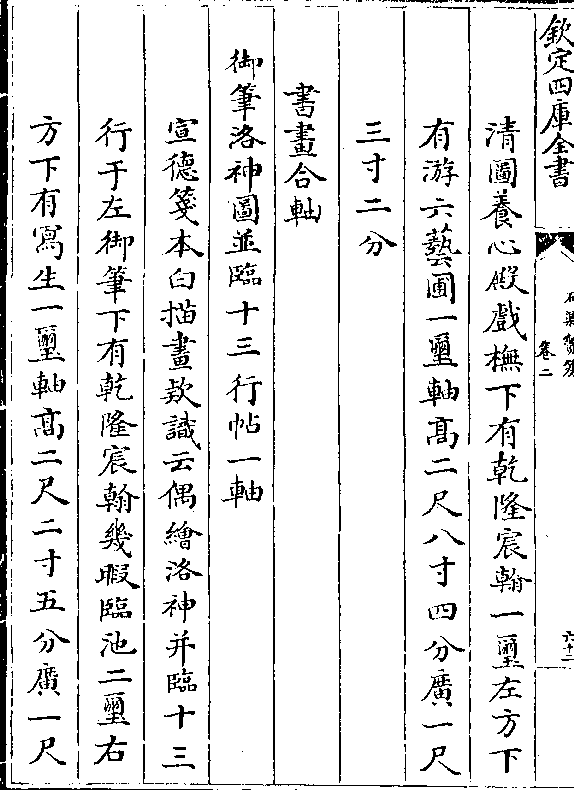 欽定四庫全書
石渠寶笈
卷二
六十二
清圖養心殿戲橅下有乾隆宸翰一璽左方下
有游六藝圃一璽軸高二尺八寸四分廣一尺
三寸二分
書畫合軸
御筆洛神圖並臨十三行帖一軸
宣德箋本白描畫款識云偶繪洛神并臨十三
行于左御筆下有乾隆宸翰幾暇臨池二璽右
方下有寫生一璽軸高二尺二寸五分廣一尺